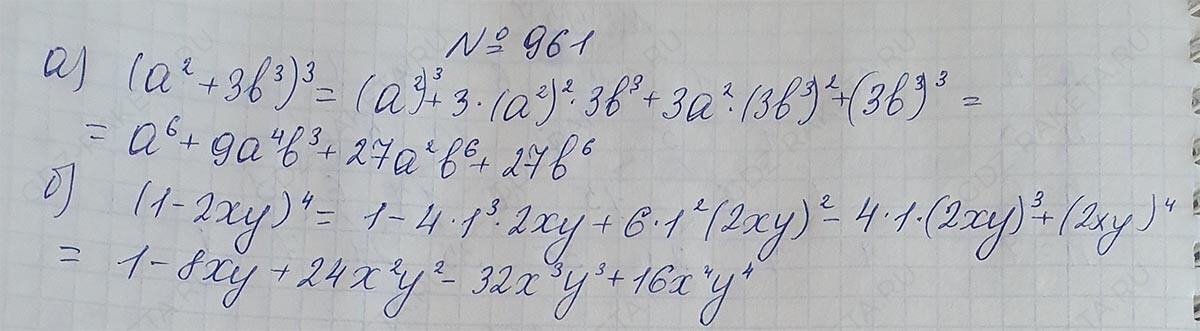 № 961
а) (a² + 3b³)³ = (a²)³ + 3 · (a²)² · 3b³ + 3a² · (3b³)² + (3b³)³ =
= a⁶ + 9a⁴b³ + 27a²b⁶ + 27b⁶
б) (1 - 2xy)⁴ = 1 - 4 · 1³ · 2xy + 6 · 1² (2xy)² - 4 · 1 · (2xy)³ + (2xy)⁴
= 1 - 8xy + 24x²y² - 32x³y³ + 16x⁴y⁴